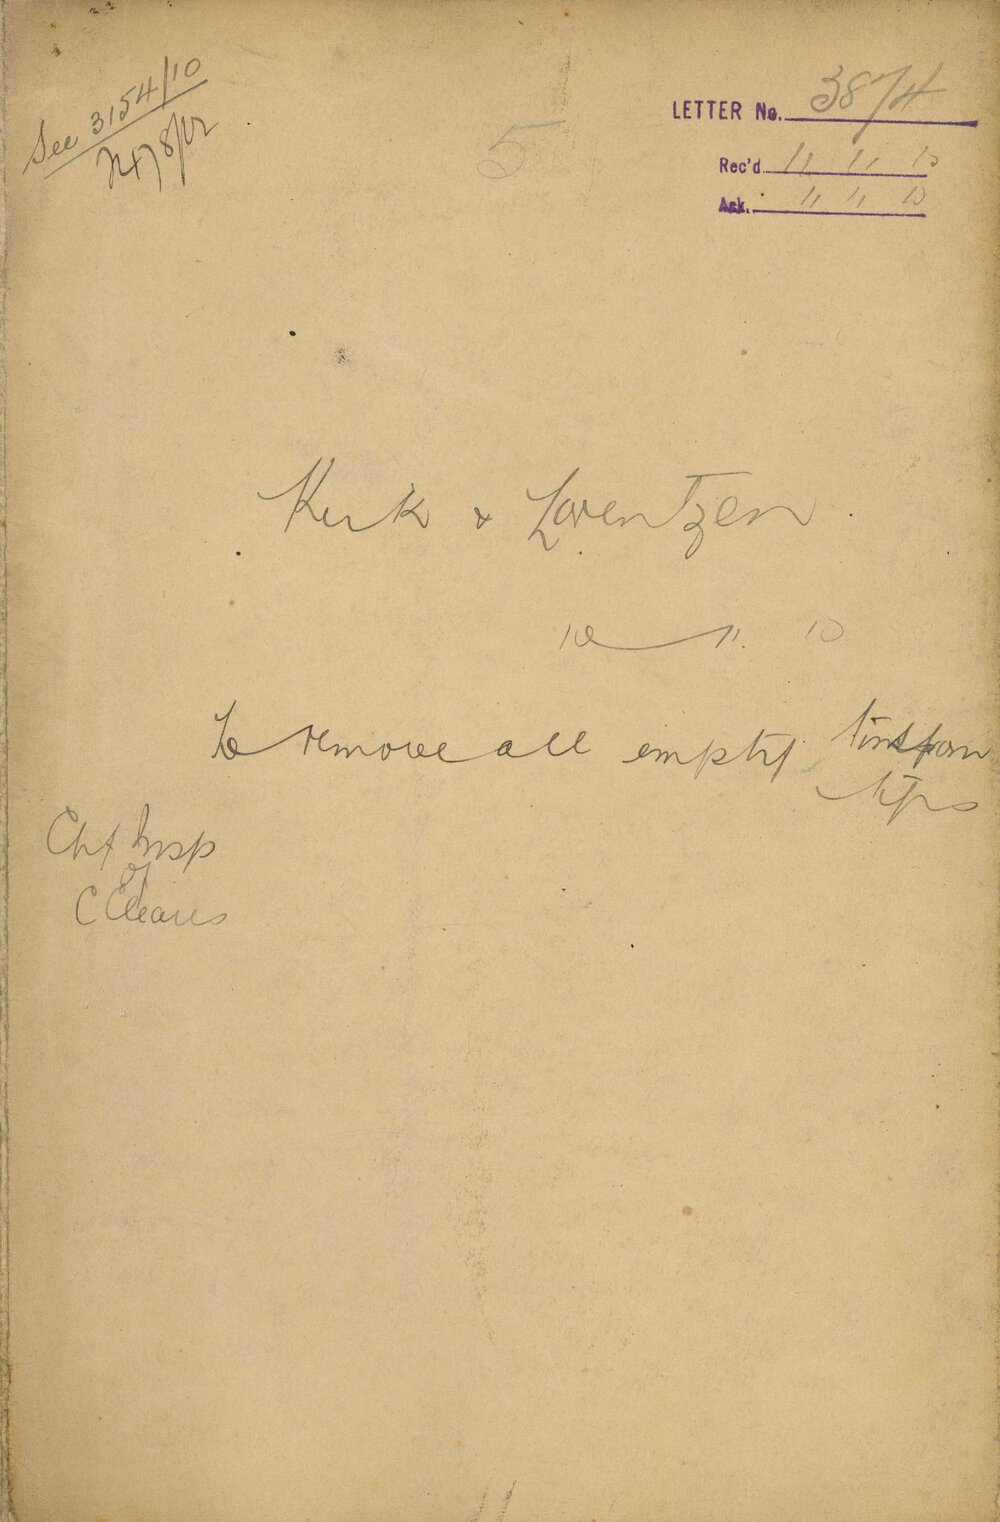 See 3154/10
2478/12
5
LETTER No. 3874
Rec'd 11 11 10
Ack. 11 11 10
Kirk & Lorentzen
10 11. 10
To remove all empty tins from
tips
Chf Insp
of
C Cleans